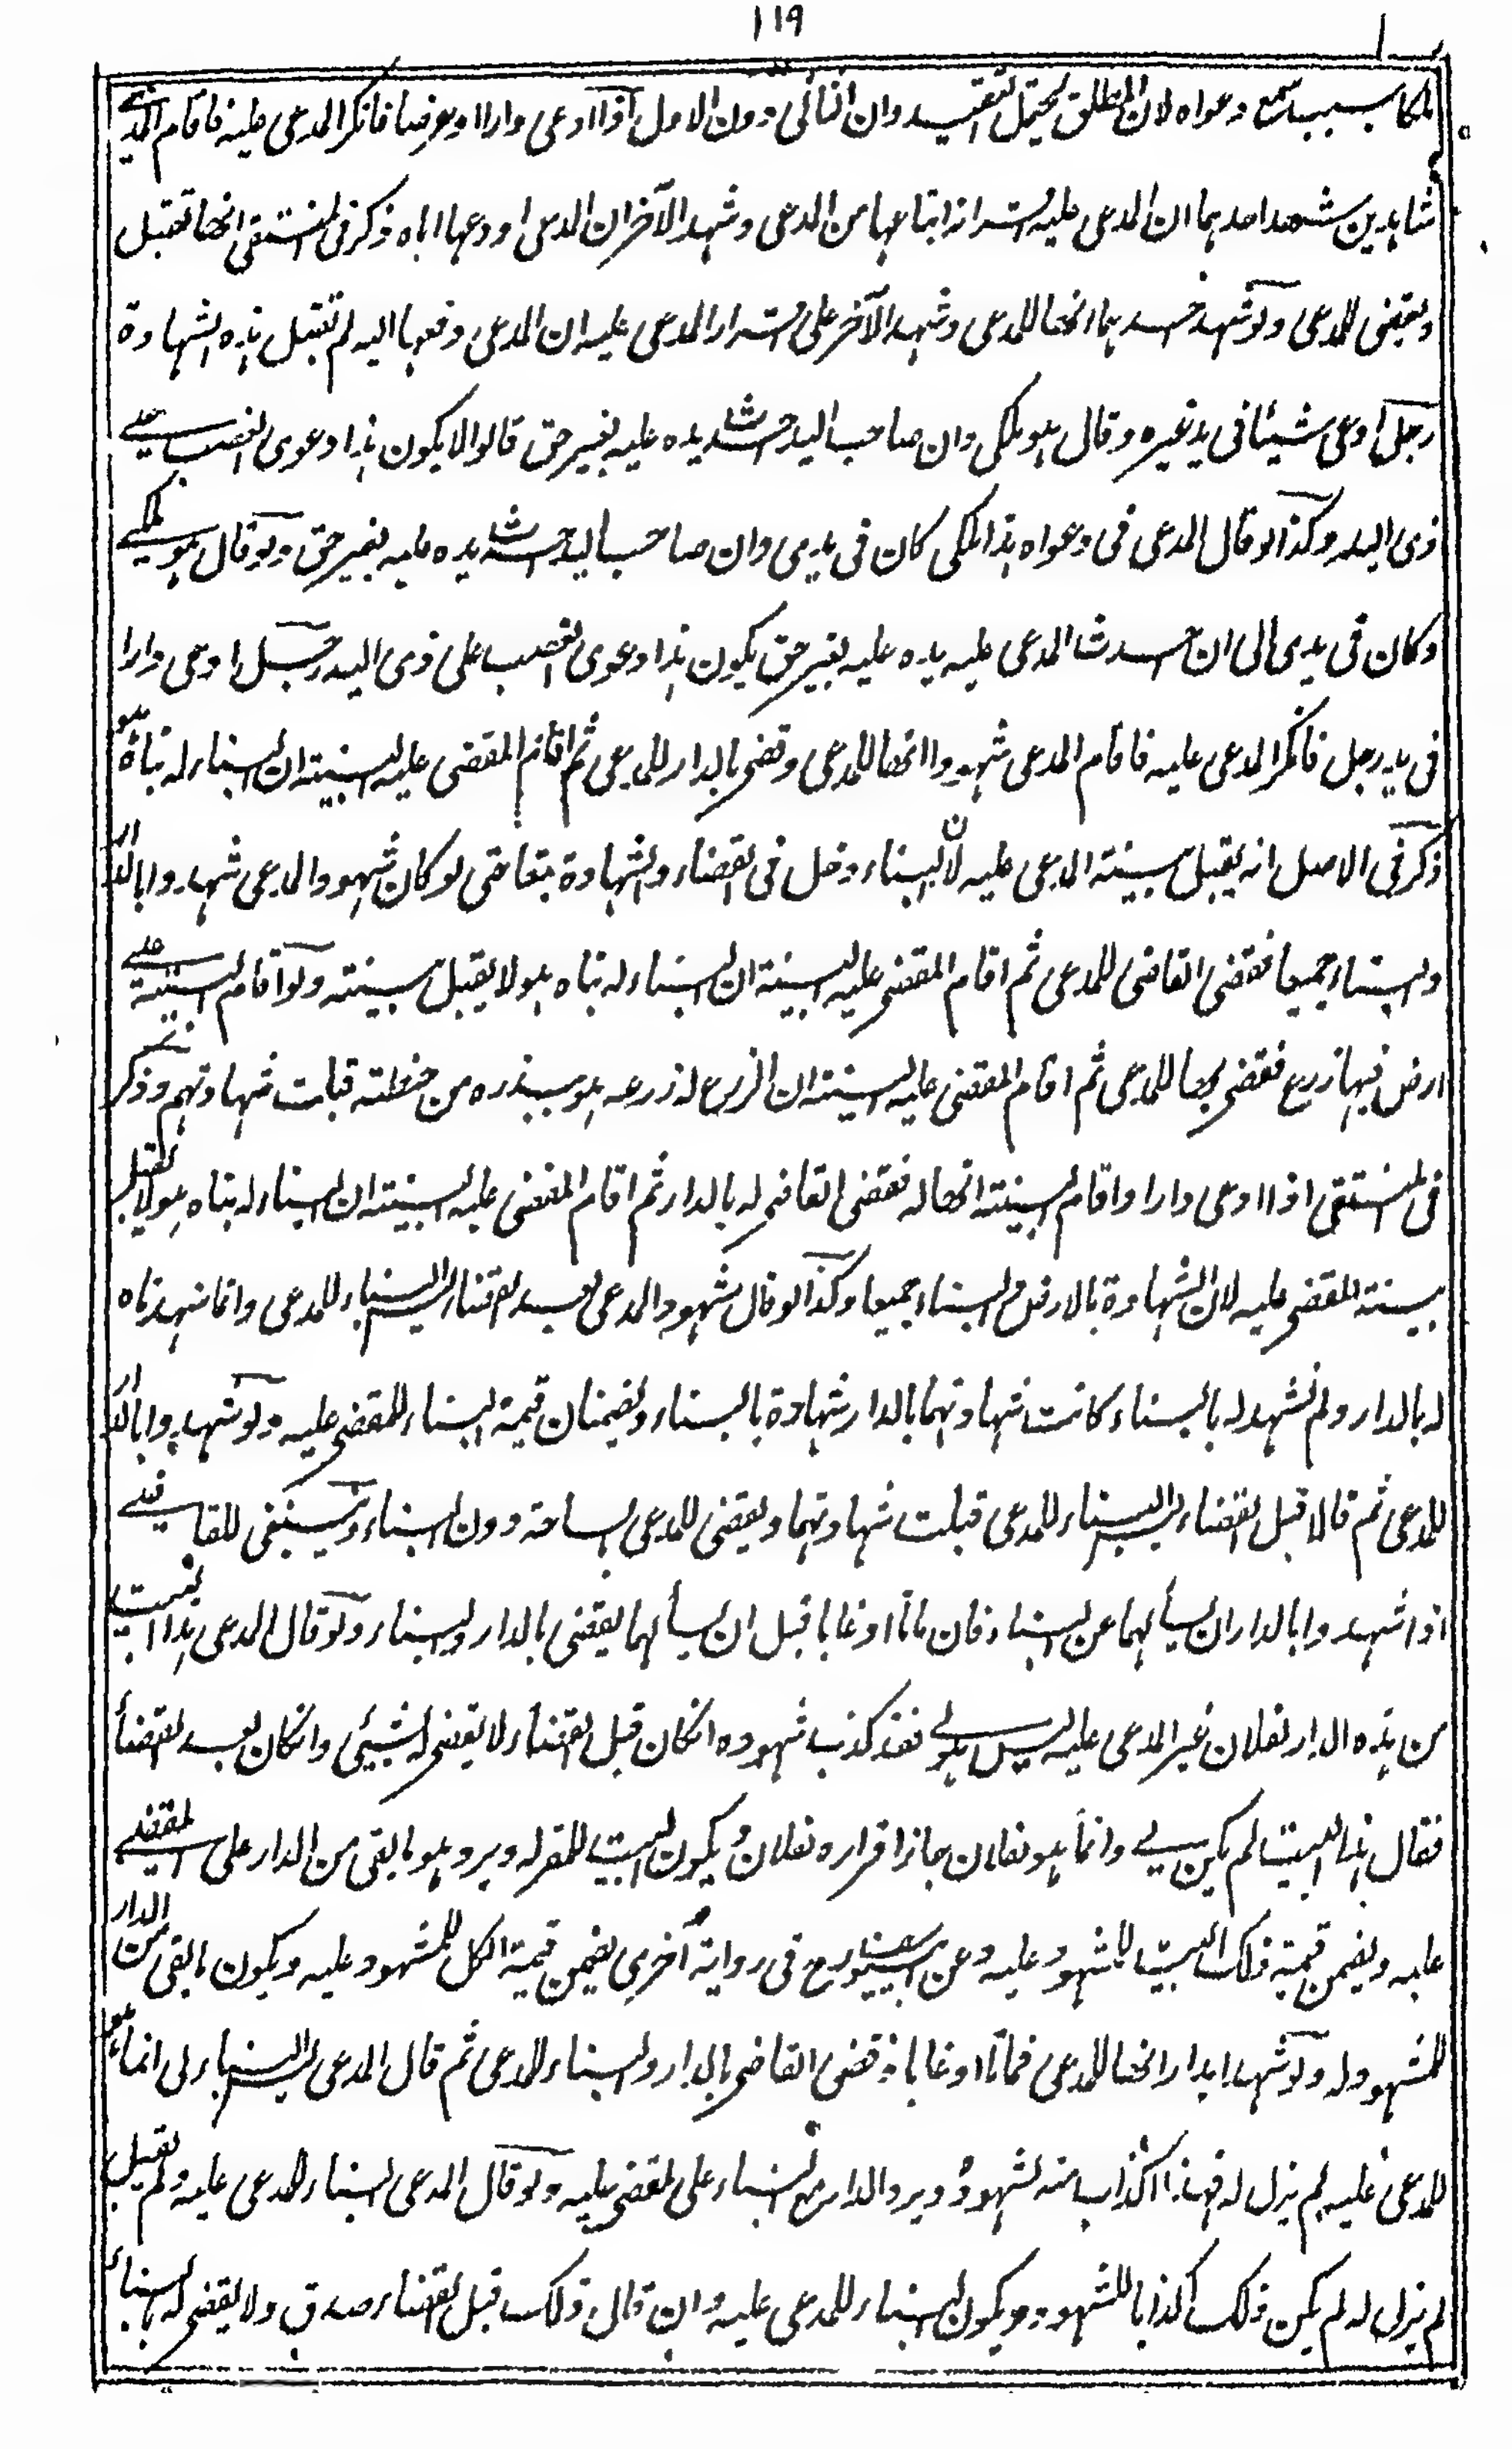 ١١٩
ملكا بسبب تسمع دعواه لان المطلق يحتمل التقييد وان الثانى دون الاول اذا ادعى دارا او عرضا فانكر المدعى عليه فاقام المدعى
شاهدين شهد احدهما ان المدعى عليه اقر انه ابتاعها من المدعى وشهد الآخر ان المدعى اودعها اياه ذكر فى المنتقى انها تقبل
ويقضى للمدعى ولو شهد احدهما انها للمدعى وشهد الآخر على اقرار المدعى عليه ان المدعى دفعها اليه لم تقبل هذه الشهادة
رجل ادعى شيئا فى يد غيره وقال هو ملكى وان صاحب اليد احدث يده عليه بغير حق قالوا لا يكون هذا دعوى الغصب على
ذى اليد وكذا لو قال المدعى فى دعواه هذا ملكى كان فى يدى وان صاحب اليد احدث يده عليه بغير حق ولو قال هو ملكى
وكان فى يدى الى ان احدث المدعى عليه يده عليه بغير حق يكون هذا دعوى الغصب على ذى اليد رجل ادعى دارا
فى يد رجل فانكر المدعى عليه فاقام المدعى شهودا انها للمدعى وقضى بالدار للمدعى ثم اقام المقضى عليه البينة ان البناء له بناه هو
ذكر فى الاصل انه يقبل بينة المدعى عليه لان البناء دخل فى القضاء والشهادة تبعا حتى لو كان شهود المدعى شهدوا بالدار
والبناء جميعا فقضى القاضى للمدعى ثم اقام المقضى عليه البينة ان البناء له بناه هو لا يقبل بينته ولو اقام البينة على
ارض فيها زرع فقضى بها للمدعى ثم اقام المقضى عليه البينة ان الزرع له زرعه هو ببذره من حنطته قبلت شهادتهم وذكر
فى المنتقى اذا ادعى دارا واقام البينة انها له فقضى القاضى له بالدار ثم اقام المقضى عليه البينة ان البناء له بناه هو لا تقبل
بينة المقضى عليه لان الشهادة بالارض والبناء جميعا وكذا لو قال شهود المدعى بعد القضاء ليس البناء للمدعى وانما شهدناه
له بالدار ولم نشهد له بالبناء كانت شهادتهما بالدار شهادة بالبناء ويضمنان قيمة البناء للمقضى عليه ولو شهدوا بالدار
للمدعى ثم قالا قبل القضاء ليس البناء للمدعى قبلت شهادتهما ويقضى للمدعى بالساحة دون البناء وينبغى للقاضى
اذا شهدوا بالدار ان يسألهما عن البناء فان ماتا او غابا قبل ان يسألهما يقضى بالدار والبناء ولو قال المدعى هذا البيت
من هذه الدار لفلان غير المدعى عليه ليس هو لى فقد كذب شهوده انكان قبل القضاء لا يقضى له بشيئ وانكان بعد القضاء
فقال هذا البيت لم يكن لى وانما هو لفلان جاز اقراره لفلان ويكون البيت للمقر له ويرد هو ما بقى من الدار على المقضى
عليه ويضمن قيمة ذلك البيت للمشهود عليه وعن ابى يوسف رح فى رواية أخرى يضمن قيمة الكل للمشهود عليه ويكون ما بقى من الدار
للمشهود له ولو شهدا بدار انها للمدعى فماتا او غابا فقضى القاضى بالدار والبناء للمدعى ثم قال المدعى ليس البناء لى انما هو
للمدعى عليه لم يزل له فهذا اكذاب منه لشهوده ويرد الدار مع البناء على المقضى عليه ولو قال المدعى البناء للمدعى عليه ولم يقل
لم يزل له لم يكن ذلك اكذابا للشهود ويكون البناء للمدعى عليه وان قال ذلك قبل القضاء صدق ولا يقضى له بالبناء